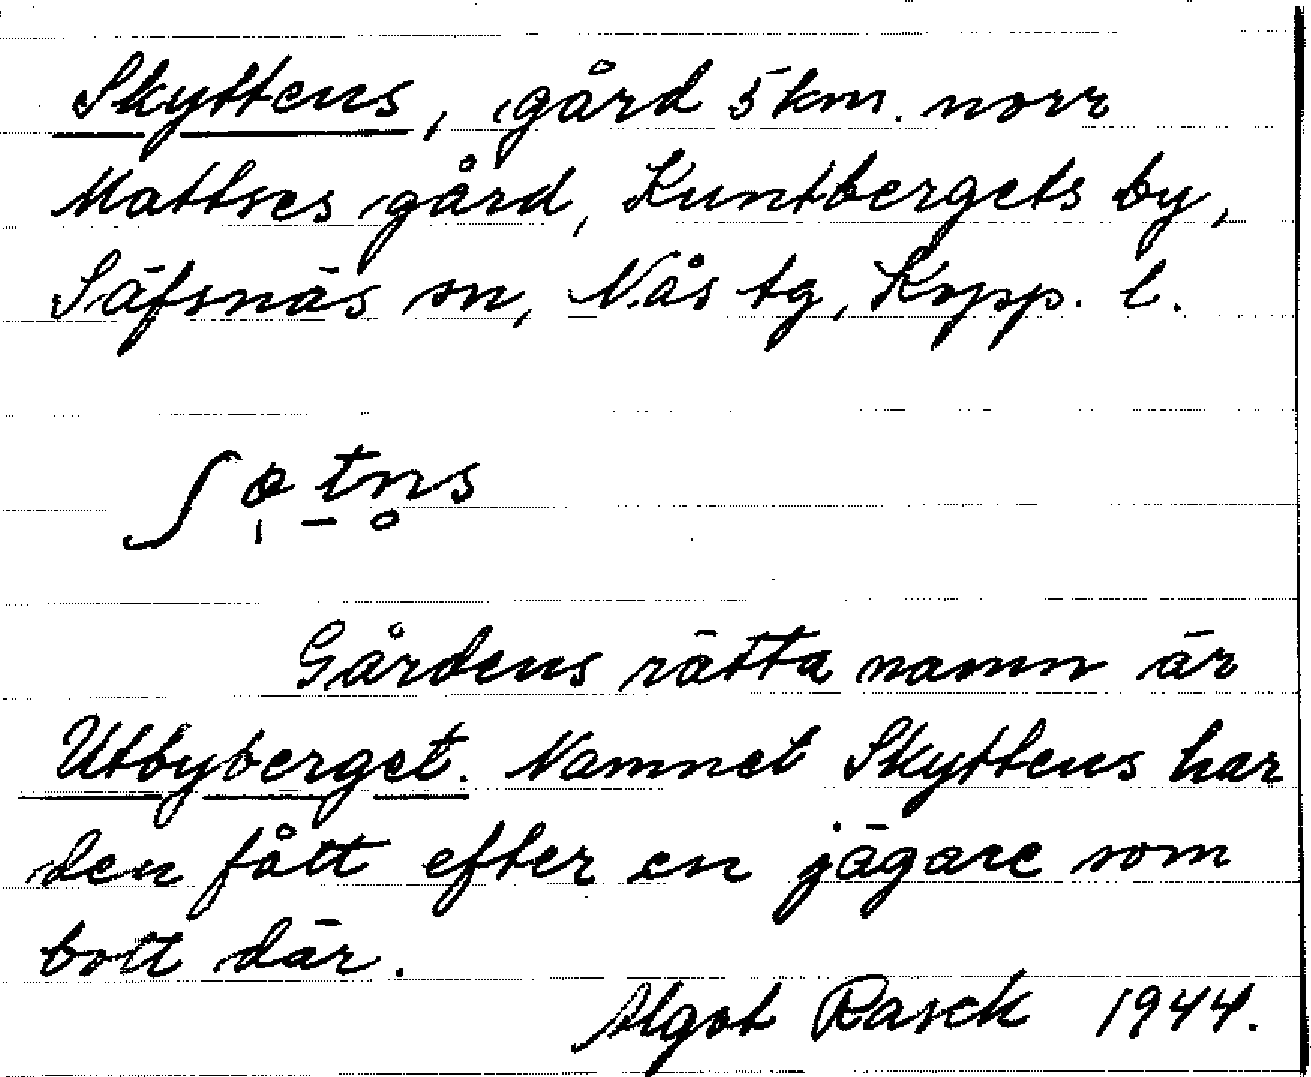 Skyttens, gård 5 km. norr
Mattses gård, Kuntbergets by,
Säfsnäs sn, Nås tg, Kopp. l.
Gårdens rätta namn är
Utbyberget. Namnet Skyttens har
den fått efter en jägare som
bott där.
Algot Rasck 1944.